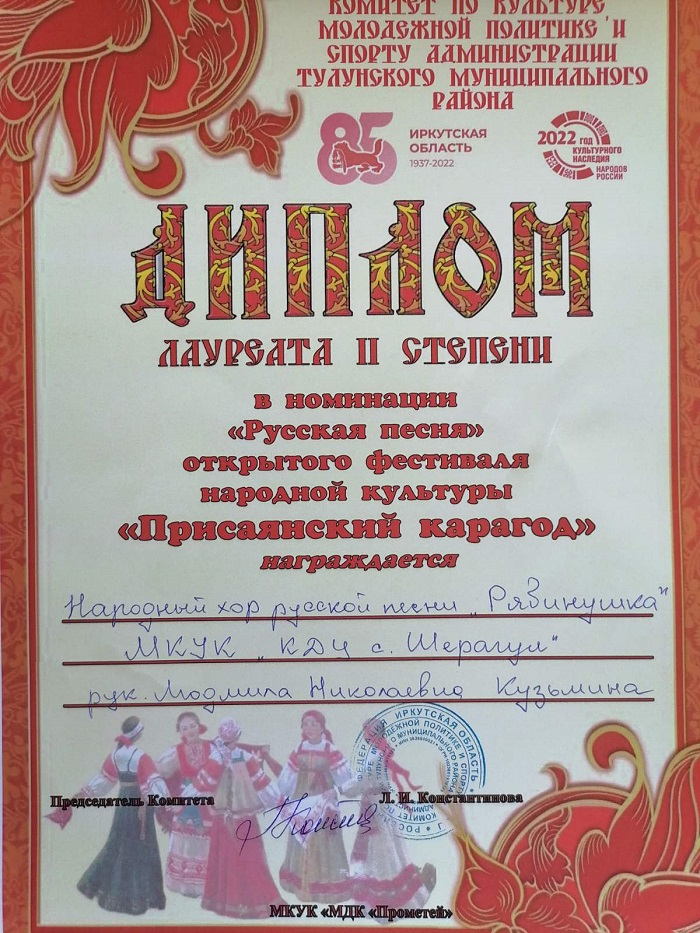 КОМИТЕТ ПО КУЛЬТУРЕ
МОЛОДЕЖНОЙ ПОЛИТИКЕ И
СПОРТУ АДМИНИСТРАЦИИ
ТУЛУНСКОГО МУНИЦИПАЛЬНОГО
РАЙОНА
85 ИРКУТСКАЯ
ОБЛАСТЬ
1937-2022
2022 ГОД
КУЛЬТУРНОГО
НАСЛЕДИЯ
НАРОДОВ
РОССИИ
ДИПЛОМ
ЛАУРЕАТА II СТЕПЕНИ
в номинации
«Русская песня»
открытого фестиваля
народной культуры
«Присаянский карагод»
награждается
Народный хор русской песни „Рябинушка"
МКУК „КДЦ с. Шерагул"
рук. Людмила Николаевна Кузьмина
ИРКУТСКАЯ ОБЛАСТЬ
Председатель Комитета
Л. И. Константинова
МКУК «МДК «Прометей»